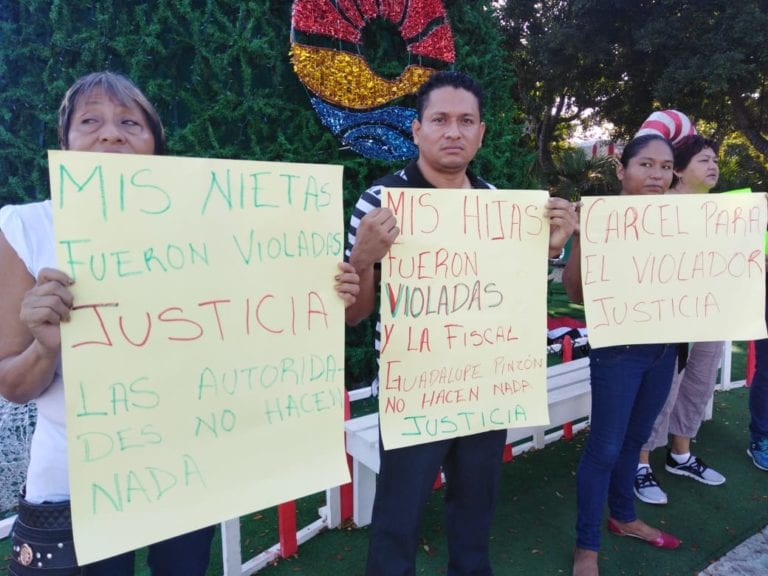 MIS NIETAS
FUERON VIOLADAS
JUSTICIA
LAS AUTORIDA-
DES NO HACEN
NADA
MIS HIJAS
FUERON
VIOLADAS
Y LA FISCAL
GUADALUPE PINZÓN
NO HACEN NADA
JUSTICIA
CARCEL PARA
EL VIOLADOR
JUSTICIA